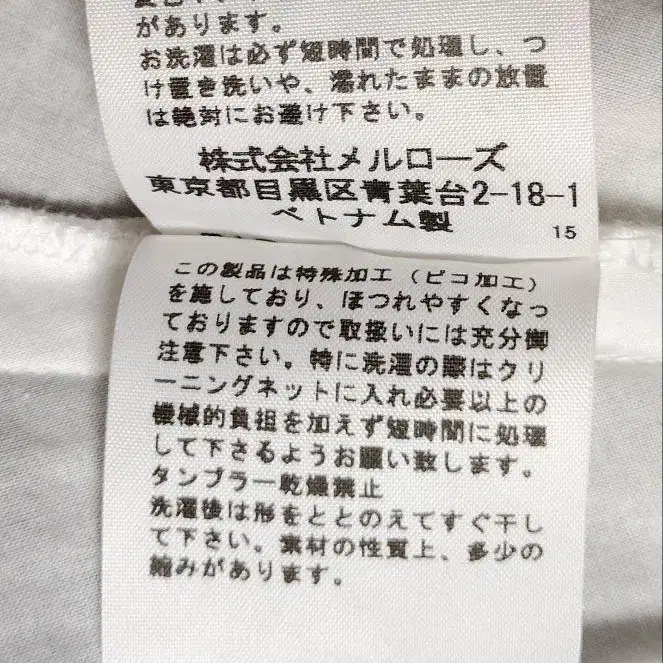 があります。
お洗濯は必ず短時間で処理し、つ
け置き洗いや、濡れたままの放置
は絶対にお避け下さい。
株式会社メルローズ
東京都目黒区青葉台2-18-1
ベトナム製
15
この製品は特殊加工（ピコ加工）
を施しており、ほつれやすくなっ
ておりますので取扱いには充分御
注意下さい。特に洗濯の際はクリ
ーニングネットに入れ必要以上の
機械的負担を加えず短時間に処理
して下さるようお願い致します。
タンブラー乾燥禁止
洗濯後は形をととのえてすぐ干し
て下さい。素材の性質上、多少の
縮みがあります。